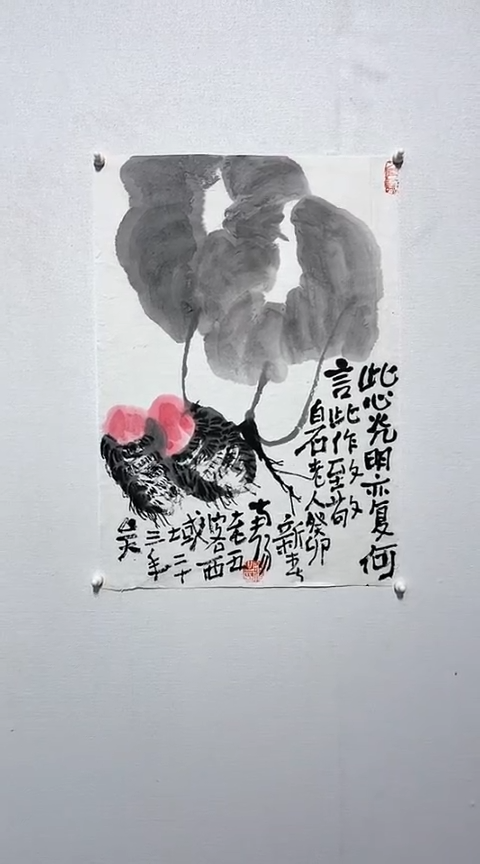 此心光明亦复何
言此作致敬
白石老人癸卯
新春
南阳
老五
客西
域二十
三年
矣